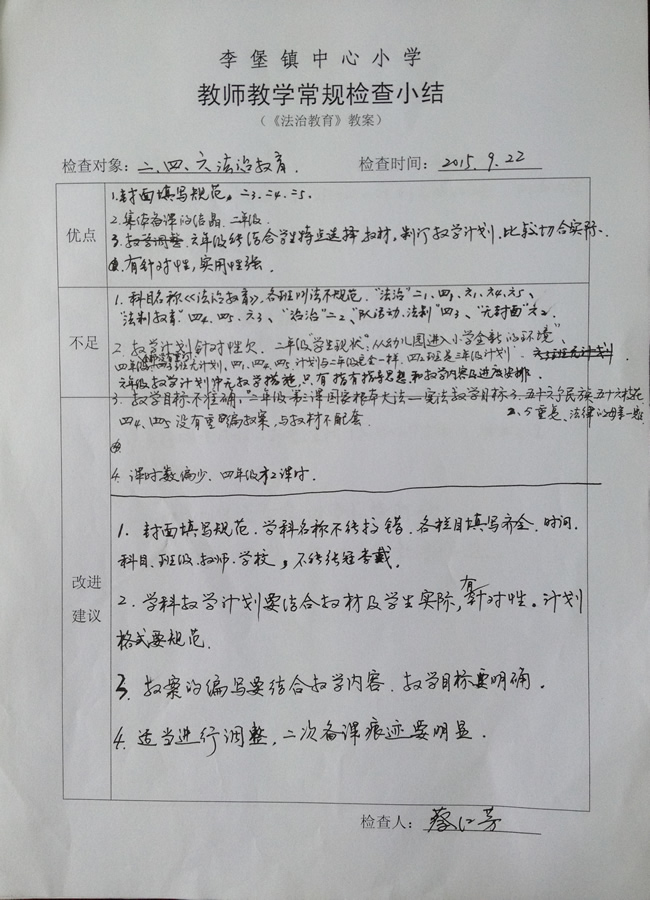 李堡镇中心小学
教师教学常规检查小结
（《法治教育》教案）
检查对象：二、四、六法治教育. 检查时间：2015.9.22
优点
1.封面填写规范。二3.二4.二5.
2.集体备课的结晶.二年级.
3. 六年级能结合学生特点选择教材,制订教学计划.比较切合实际.
有针对性,实用性强.
不足
1.科目名称《法治教育》,各班叫法不规范."法治"二1、四1、六1、六4、六5、
"法制教育"四4、四5、六3、 二2、"队活动.法制"四3、"无封面"六2.
2.教学计划针对性欠.二年级"学生现状":从幼儿园进入小学全新的环境"、
四1、四4、四5.计划与二年级完全一样.四2班是三年级计划.
六年级教学计划中无教学措施,只有指导思想和教学内容及进度安排.
3.教学目标不准确,"二年级第三课国家根本大法—宪法教学目标3.五十六个民族五十六枝花
2、5重复、法律的
四4、四5没有重编教案,与教材不配套.
4.课时数偏少.四年级才2课时.
改进
建议
1.封面填写规范.学科名称不能搞错.各栏目填写齐全.时间.
科目、班级、教师、学校,不能张冠李戴.
2.学科教学计划要结合教材及学生实际,有针对性。计划
格式要规范.
3.教案的编写要结合教学内容.教学目标要明确.
4.适当进行调整,二次备课痕迹要明显.
检查人：蔡江芳